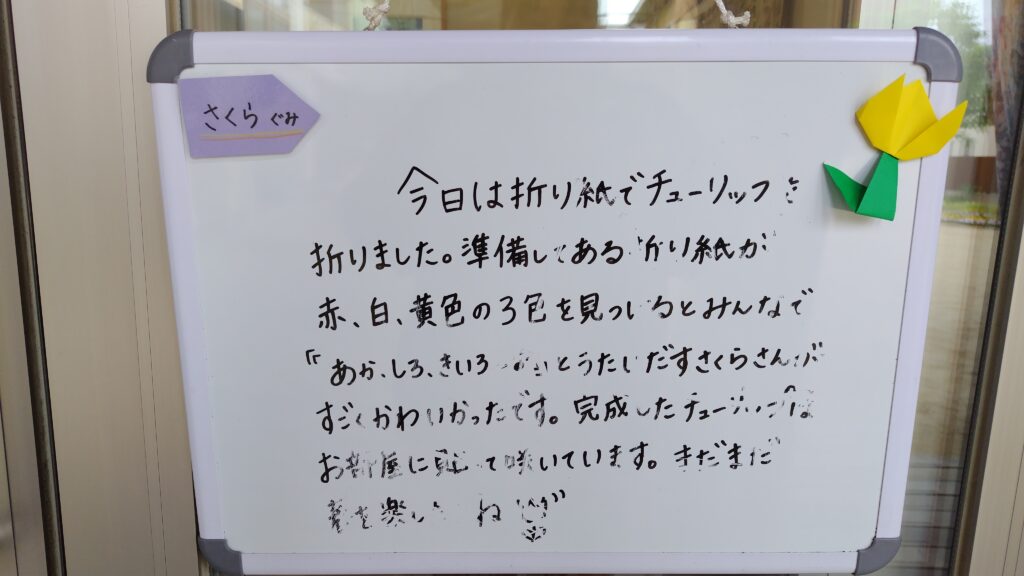 さくらぐみ
今日は折り紙でチューリップを
折りました。準備してある折り紙が
赤、白、黄色の3色を見つけるとみんなで
「あか、しろ、きいろ とうたいだすさくらさんが
すごくかわいかったです。完成したチューリップは
お部屋に 咲いています。まだまだ
春を楽し ね